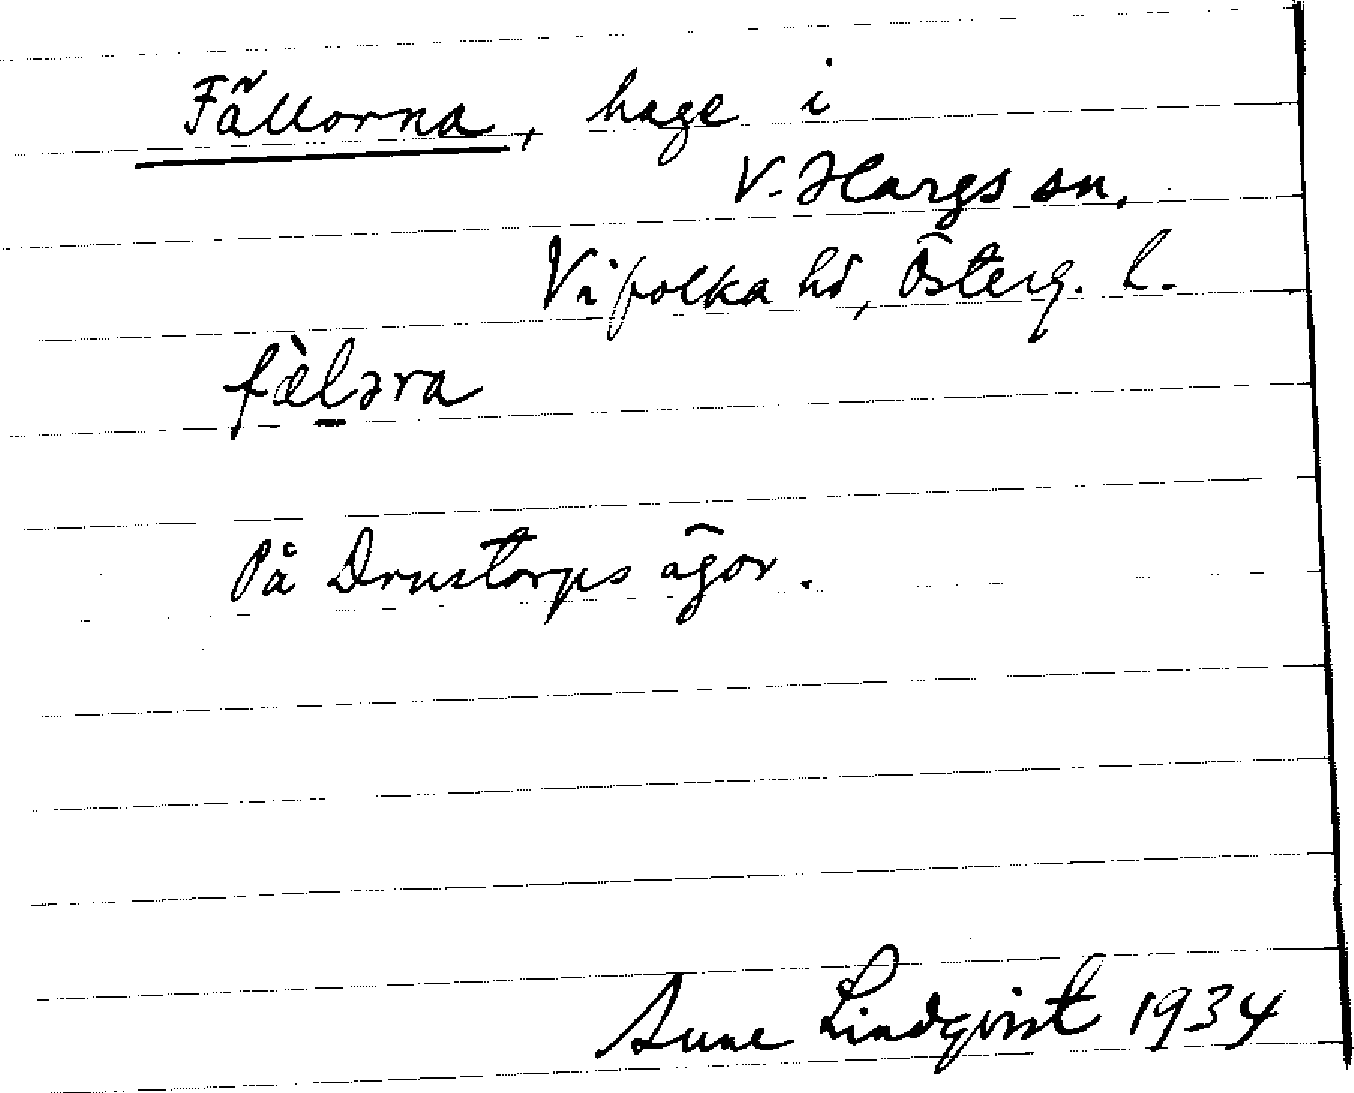 Fällorna, hage i
V. Hargs sn,
Vifolka hd, Österg. l.
fæ̀l̠əra
På Drustorps ägor.
Sune Lindqvist 1934